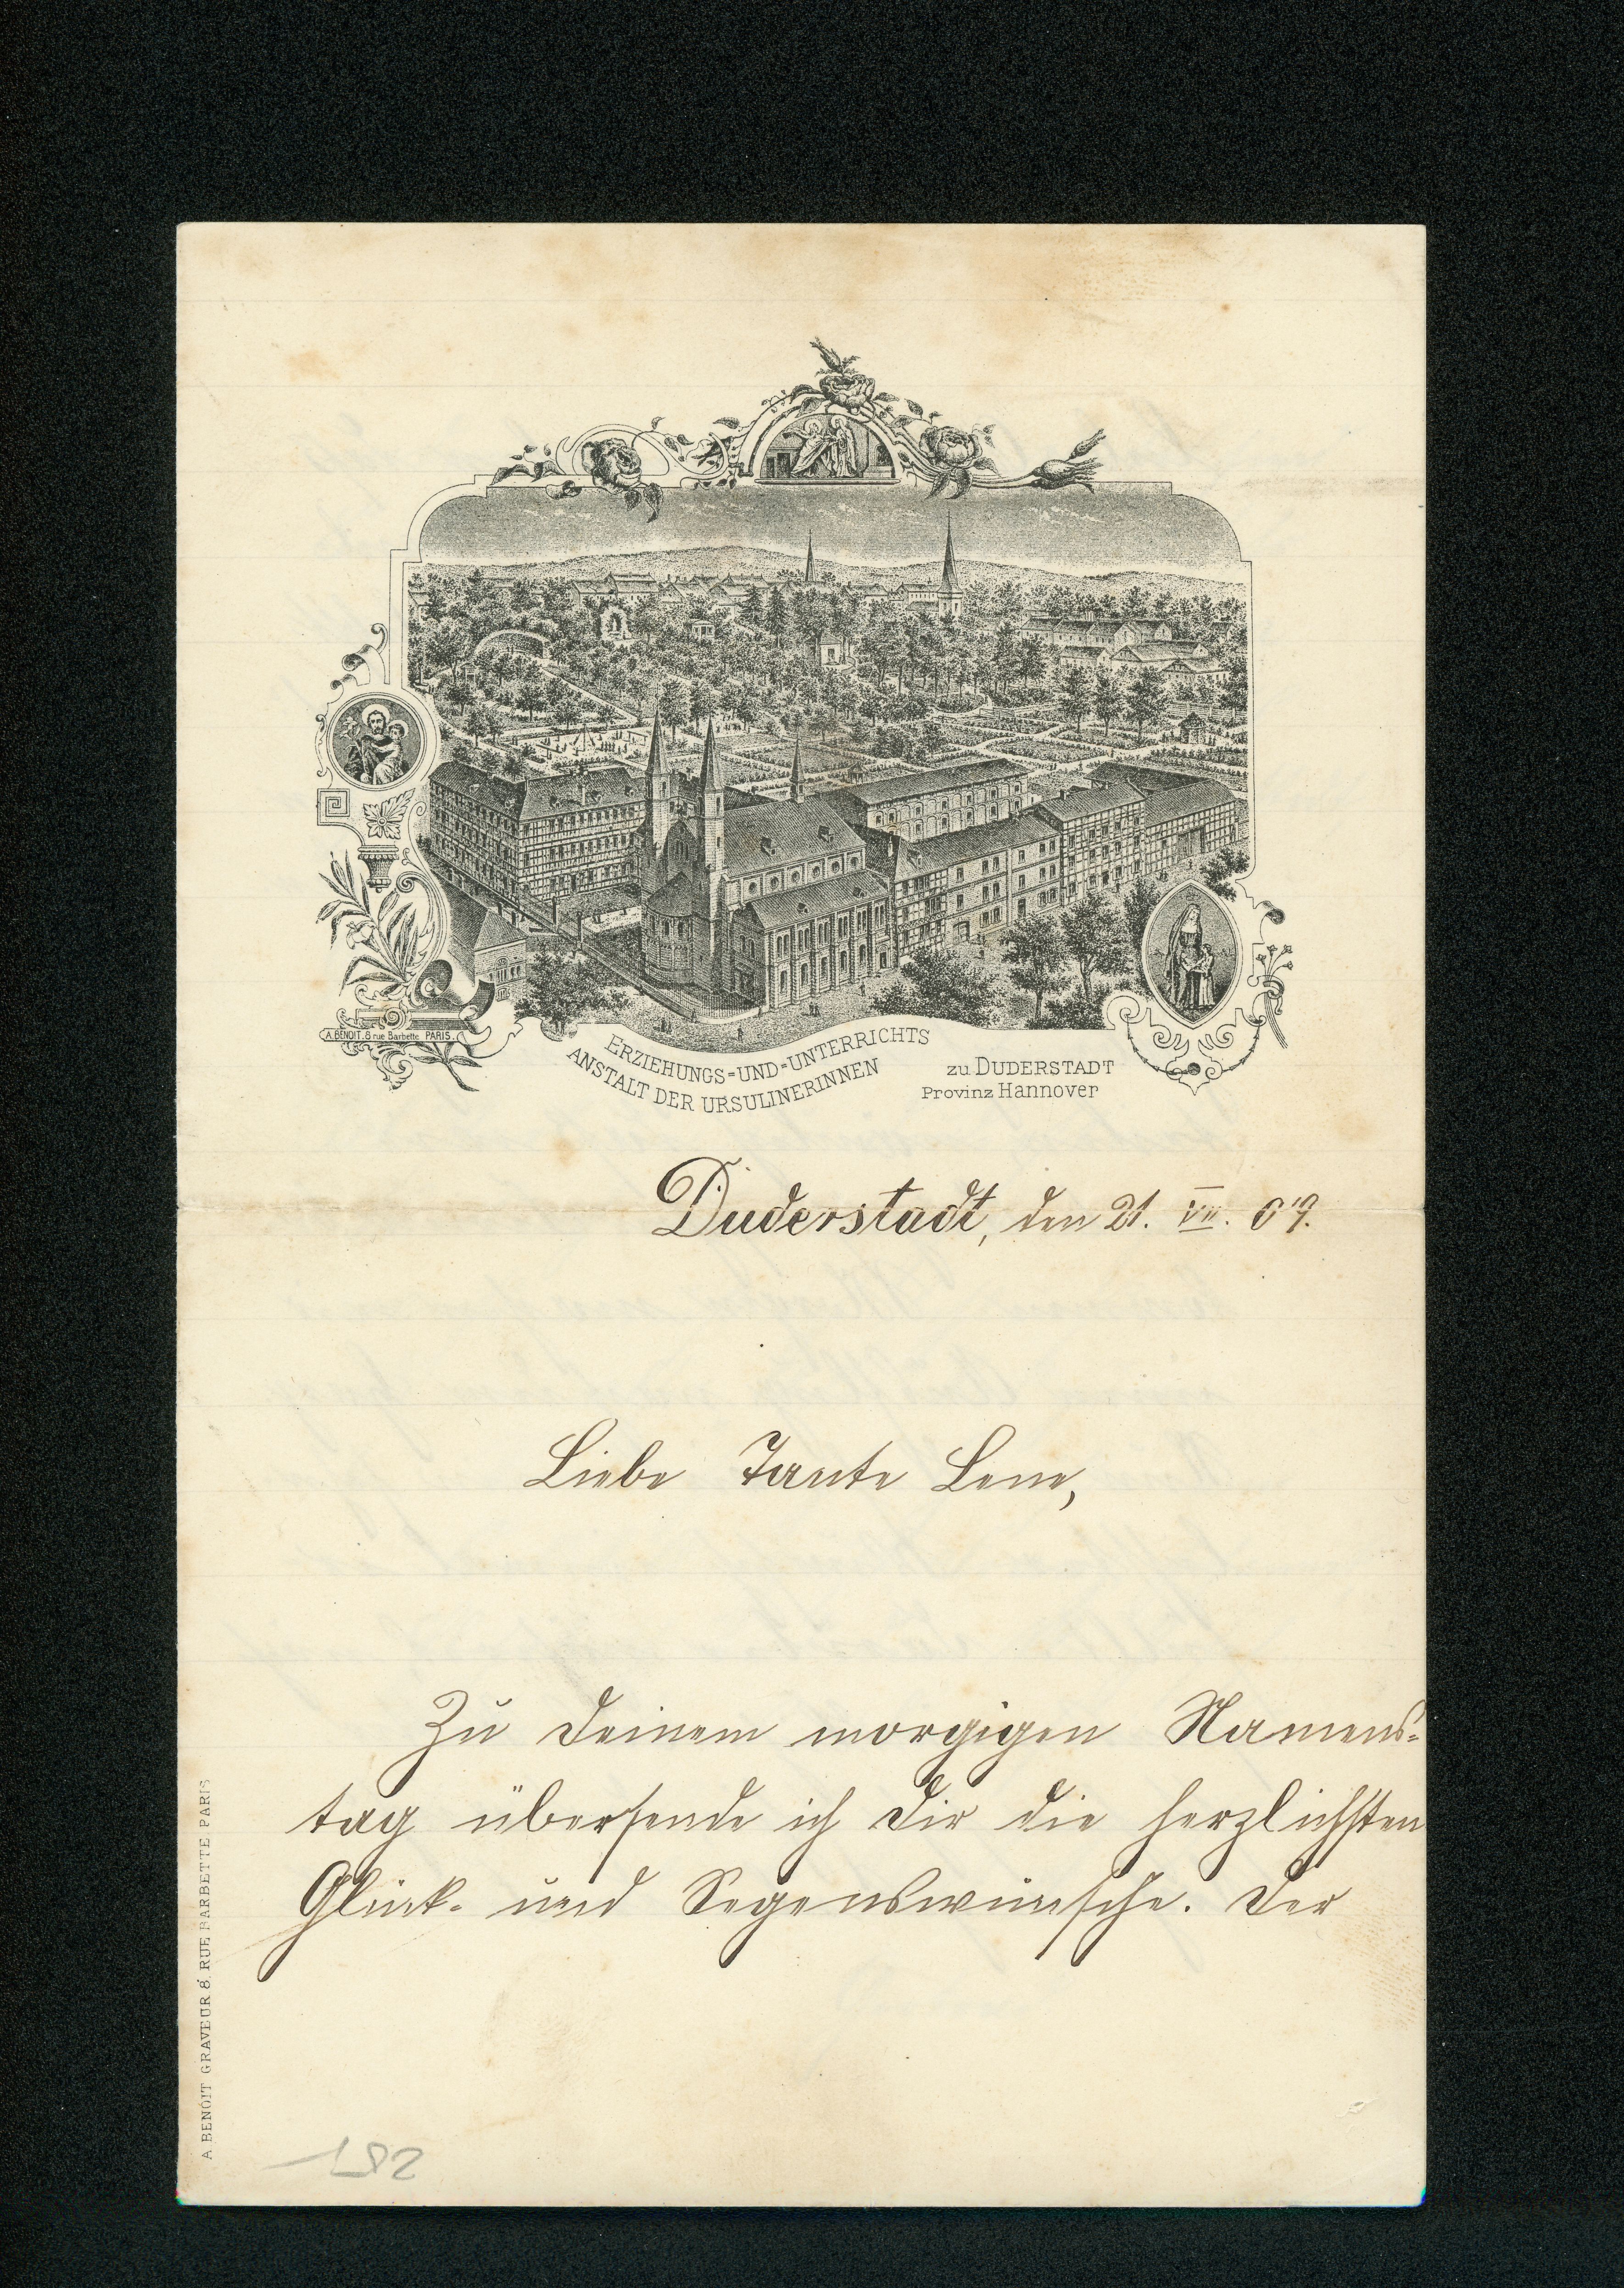 A. BENOIT. 8 rue Barbette PARIS.
ERZIEHUNGS=UND=UNTERRICHTS
ANSTALT DER URSULINERINNEN
zu DUDERSTADT
Provinz Hannover
Duderstadt, den 21. VII. 07.
Liebe Tante Lene,
Zu Deinem morgigen Namens=
tag übersende ich Dir die herzlichsten
Glück- und Segenswünsche. Der
A. BENOIT GRAVEUR 8, RUE BARBETTE PARIS
192